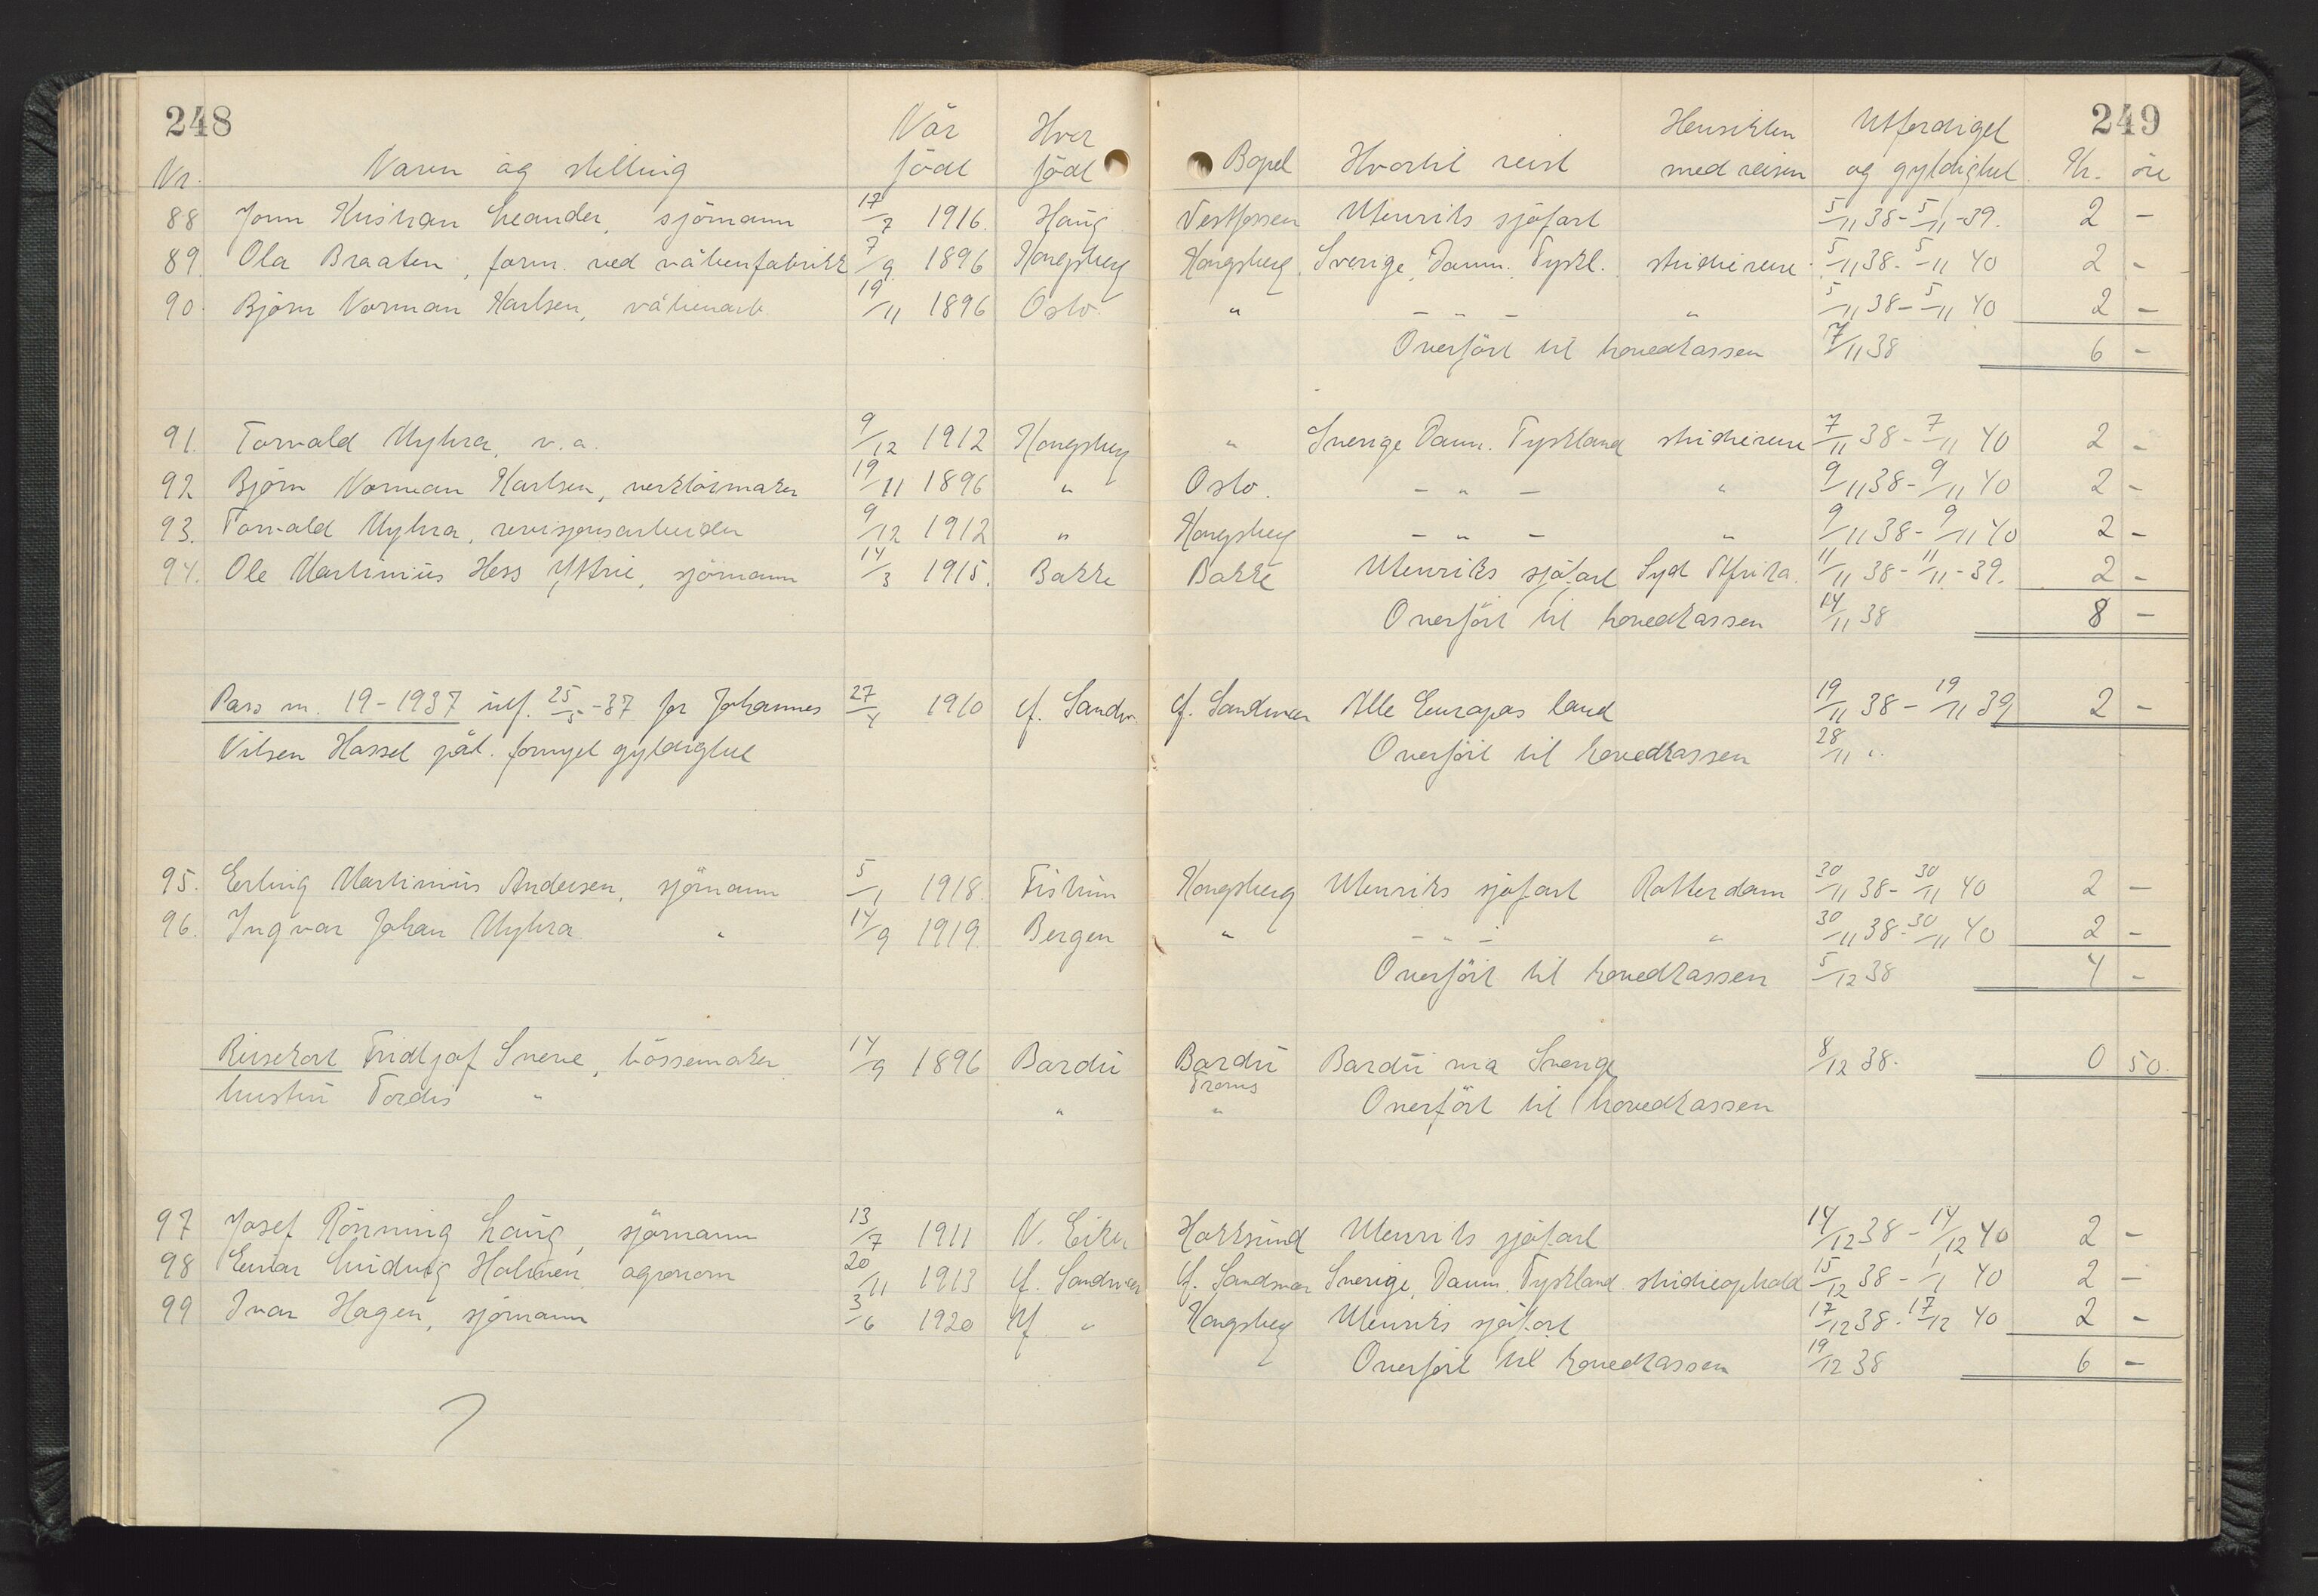 248
249
Nr. Navn og stilling Når födt Hvor födt Bopel Hvortil reist Hensikten med reisen Utferdiget og gyldighet Kr. öre
88 Jonn Kristian Leander, sjömann 17/7 1916. Haug Vestfossen Utenriks sjöfart 5/11 38 - 5/11 - 39. 2 -
89. Ola Braaten, form. ved våbenfabrikk 7/9 1896 Kongsberg Kongsberg Sverige, Danm. Tyskl. studiereise 5/11 38 - 5/11 40 2 -
90. Björn Norman Karlsen, våbenarb. 19/11 1896 Oslo. " - " - " 5/11 38 - 5/11 40 2 -
Overfört til hovedkassen 7/11 38 6 -
91. Torvald Myhra, v.a. 9/12 1912 Kongsberg " Sverige Danm. Tyskland studiereise 7/11 38 - 7/11 40 2 -
92 Björn Norman Karlsen, verktöimaker 19/11 1896 " Oslo. - " - " 9/11 38 - 9/11 40 2 -
93. Torvald Myhra, revisjonsarbeider 9/12 1912 " Kongsberg - " - " 9/11 38 - 9/11 40 2 -
94. Ole Martinius Hess Yttrie, sjömann 14/3 1915. Bakke Bakke Utenriks sjöfart Syd Afrika. 11/11 38 - 11/11 - 39. 2 -
Overfört til hovedkassen 14/11 38 8 -
Pass nr. 19 - 1937 utf. 25/5 - 37 for Johannes 27/4 1910 Y. Sandsv. Y. Sandsvær Alle Europas land 19/11 38 - 19/11 39 2 -
Nilsen Hassel påt. fornyet gyldighet Overfört til hovedkassen 28/11 "
95. Erling Martinius Andersen, sjömann 5/1 1918. Fiskum Kongsberg Utenriks sjöfart Rotterdam 30/11 38 - 30/11 40 2 -
96. Ingvar Johan Myhra " 14/9 1919 Bergen " - " - " 30/11 38 - 30/11 40 2 -
Overfört til hovedkassen 5/12 38 4 -
Reisekort Fridtjof Sneve, bössemaker 14/9 1896 Bardu Bardu Troms Bardu via Sverige 8/12 38. 0 50.
hustru Tordis " " " Overfört til hovedkassen
97 Josef Rönning Haug, sjömann 13/7 1911 N. Eiker Hokksund Utenriks sjöfart 14/12 38 - 14/12 40 2 -
98 Einar Ludvig Holmen agronom 20/11 1913 Y. Sandsvær Y. Sandsvær Sverige, Danm. Tyskland studieophold 15/12 38 - 1/1 40 2 -
99 Ivar Hagen, sjömann 3/6 1920 Y. " Kongsberg Utenriks sjöfart 17/12 38 - 17/12 40 2 -
Overfört til hovedkassen 19/12 38 6 -